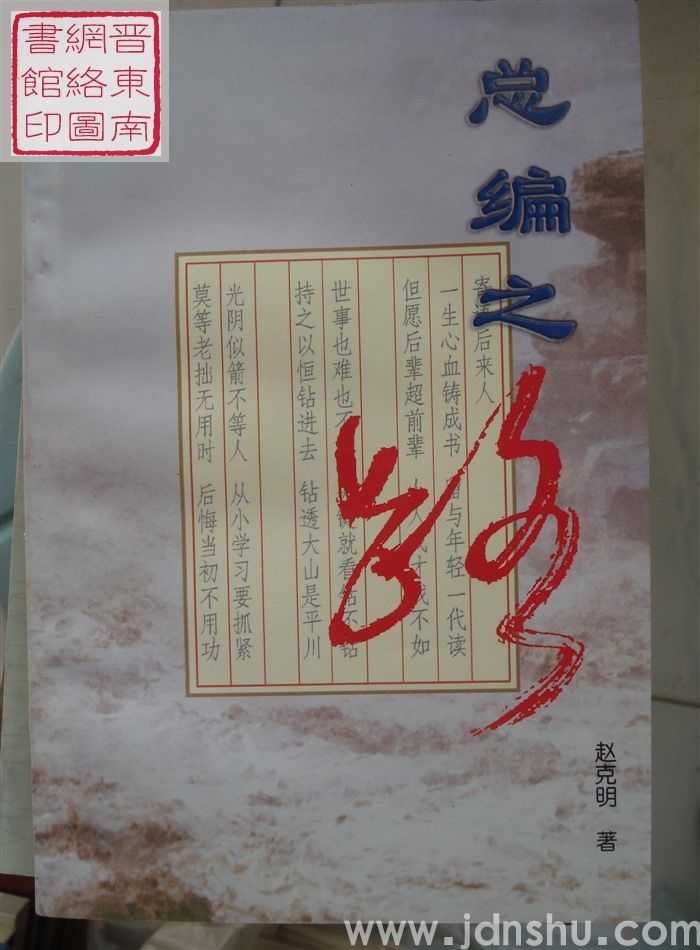 晋東南
網絡圖
書館印
总编之路
寄语后来人
一生心血铸成书 留与年轻一代读
但愿后辈超前辈 不如
世事也难也不 就看钻不钻
持之以恒钻进去 钻透大山是平川
光阴似箭不等人 从小学习要抓紧
莫等老拙无用时 后悔当初不用功
赵克明 著
www.jdnshu.com